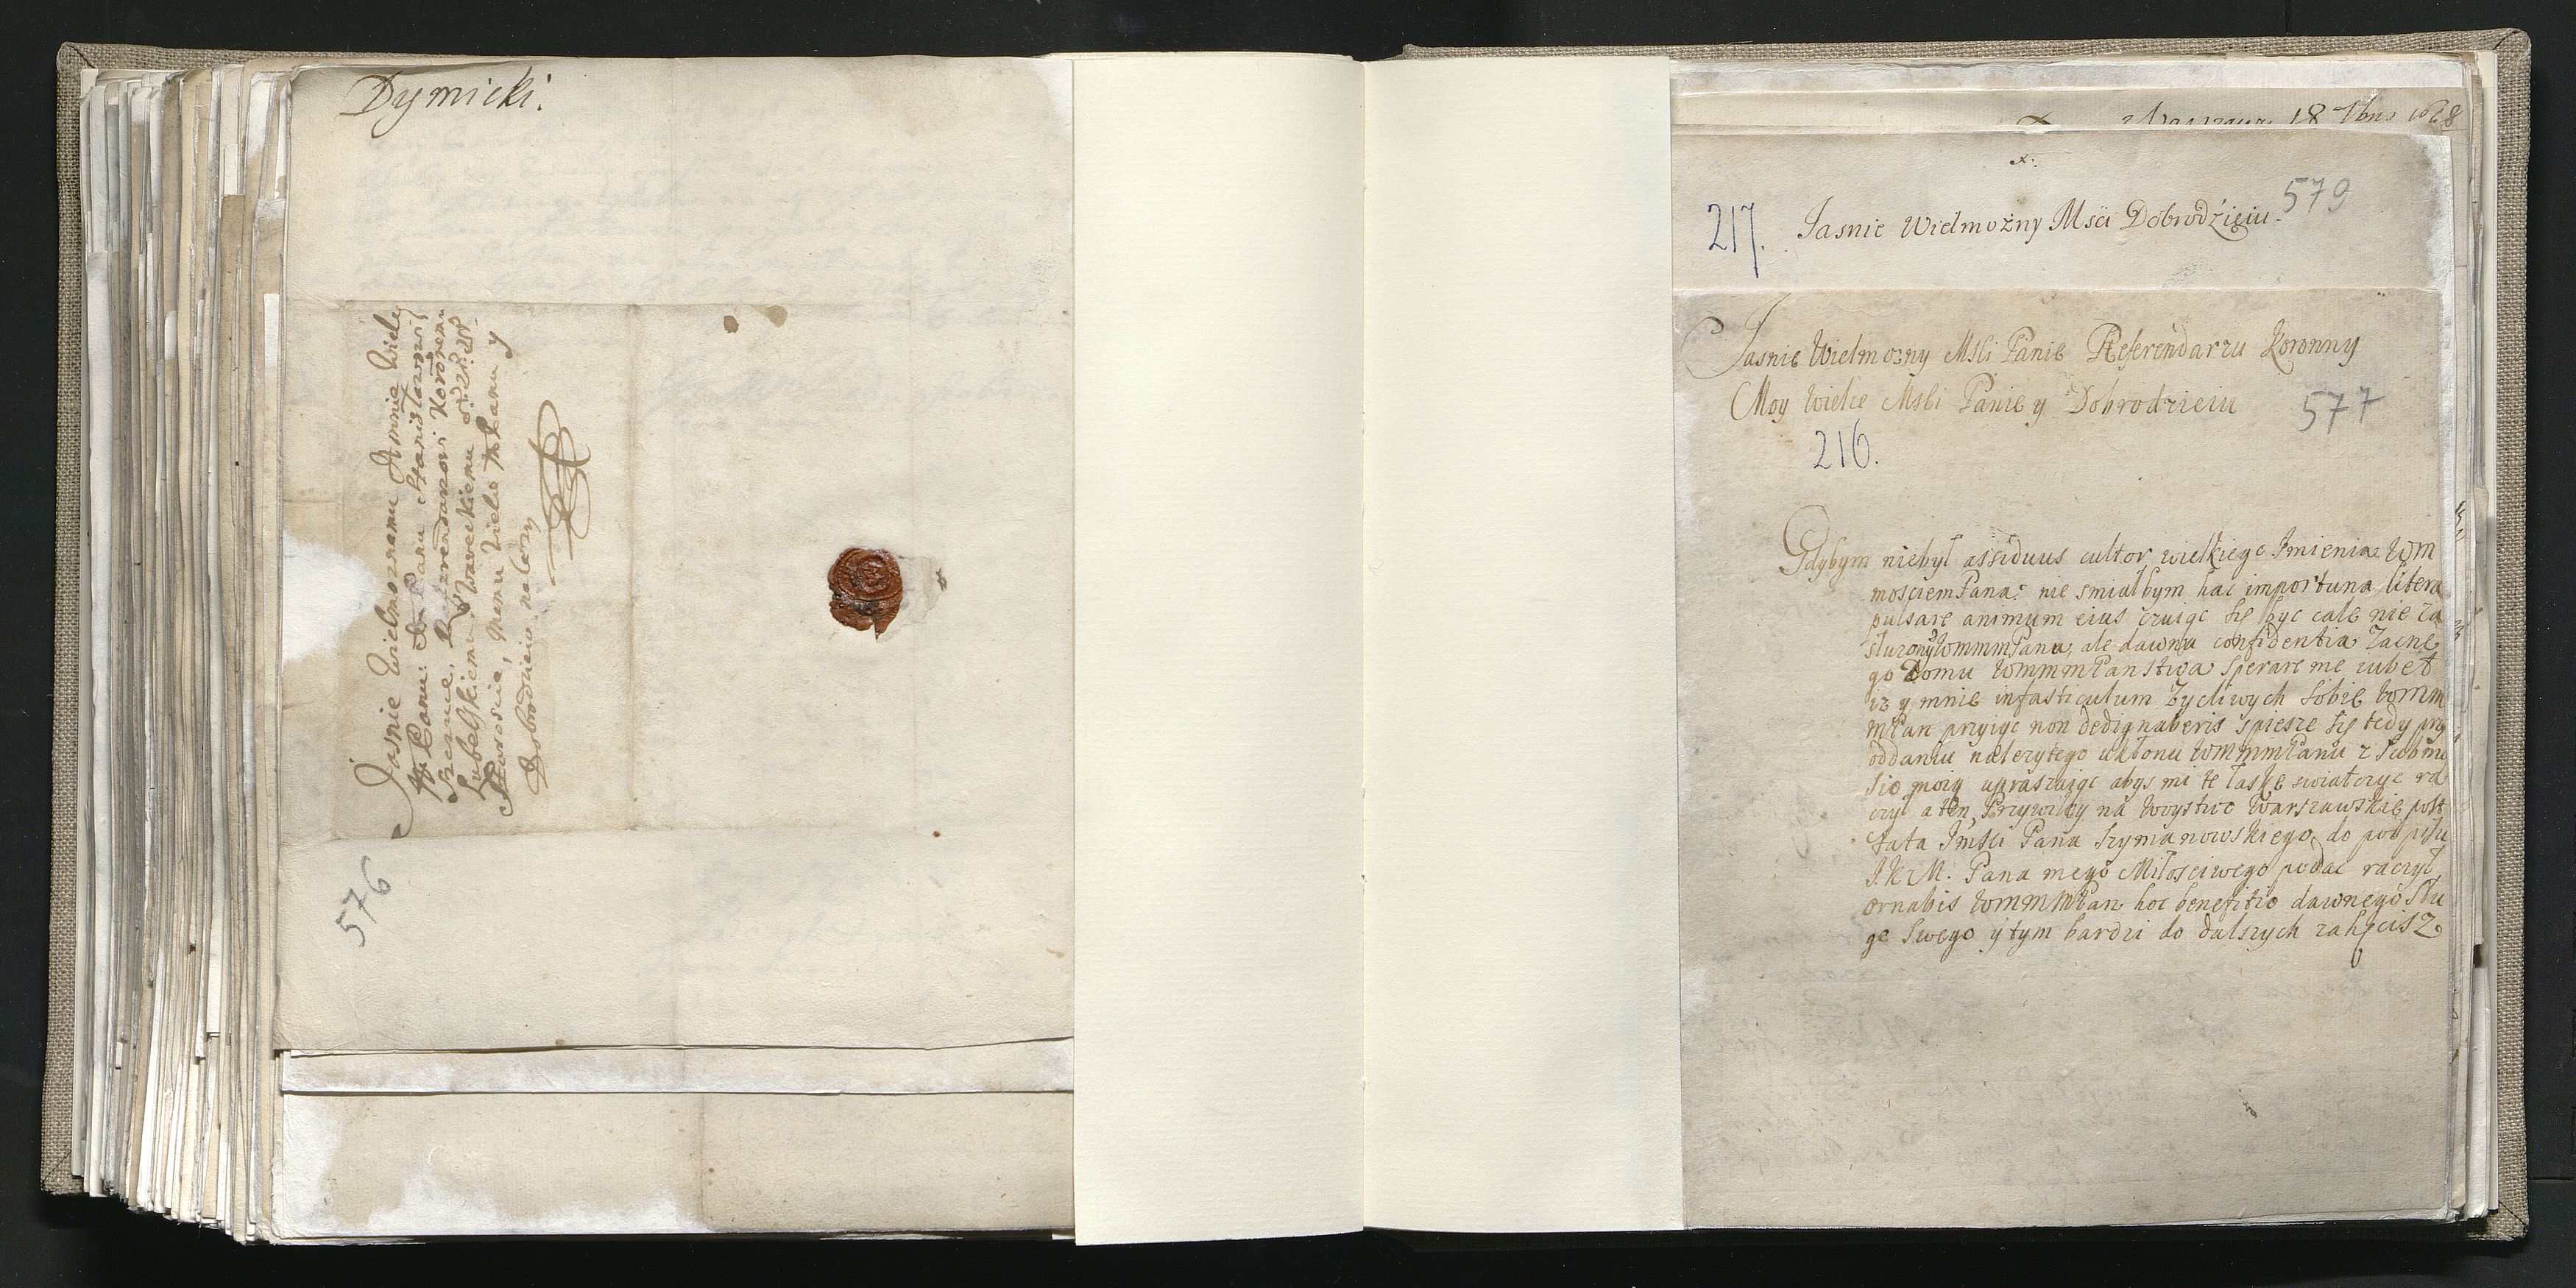 Dymicki.
Jasnie Wielmoznemu Amnie Wielce
Panu: Panu Stanisławowi
Referendarzowi Koronemu
Lubelskiemu Wareckiemu
Staroscie, memu Wielce Panu y
Dobrodzieiu nalezy
576
18 1668
x.
217. Jasnie Wielmożny Msci Dobrodźieiu. 579
Jasnie Wielmozny Msci Panie Referendarzu Koronny
Moy Wielce Msci Panie y Dobrodzieiu 577
216.
Gdybym niebył assiduus cultor wielkiego Imienia Wm
mosciem Pana: nie smiałbym hac importuna litera
pulsare animum eius czuiąc się byc cale nie za
słuzony Wmmm Panu, ale dawna confidentia Zacne
go Domu Wmmm Panstwa sperare me iubet
iz y mnie infasticulum Zyczliwych sobie Wmm
mPan przyiąc non dedignaberis spiesze się tedy przy
oddaniu należytego ukłonu Wmmm Panu z
moią upraszaiąc abys mi te łaske swiatczyc ra
czył a ten Przywiley na Woystwo Warszawskie post
fata Jmsci Pana Szymanowskiego do podpisu
J.K.M. Pana mego Miłosciwego podac raczył
ornabis Wmmm Pan hoc benefitio dawnego słu
gę swego y tym bardzi do dalszych zahęcisz